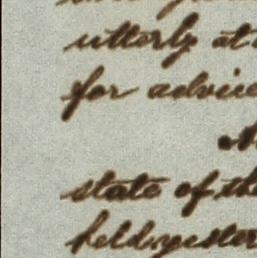 utterly at
for advice
state of the
held yester